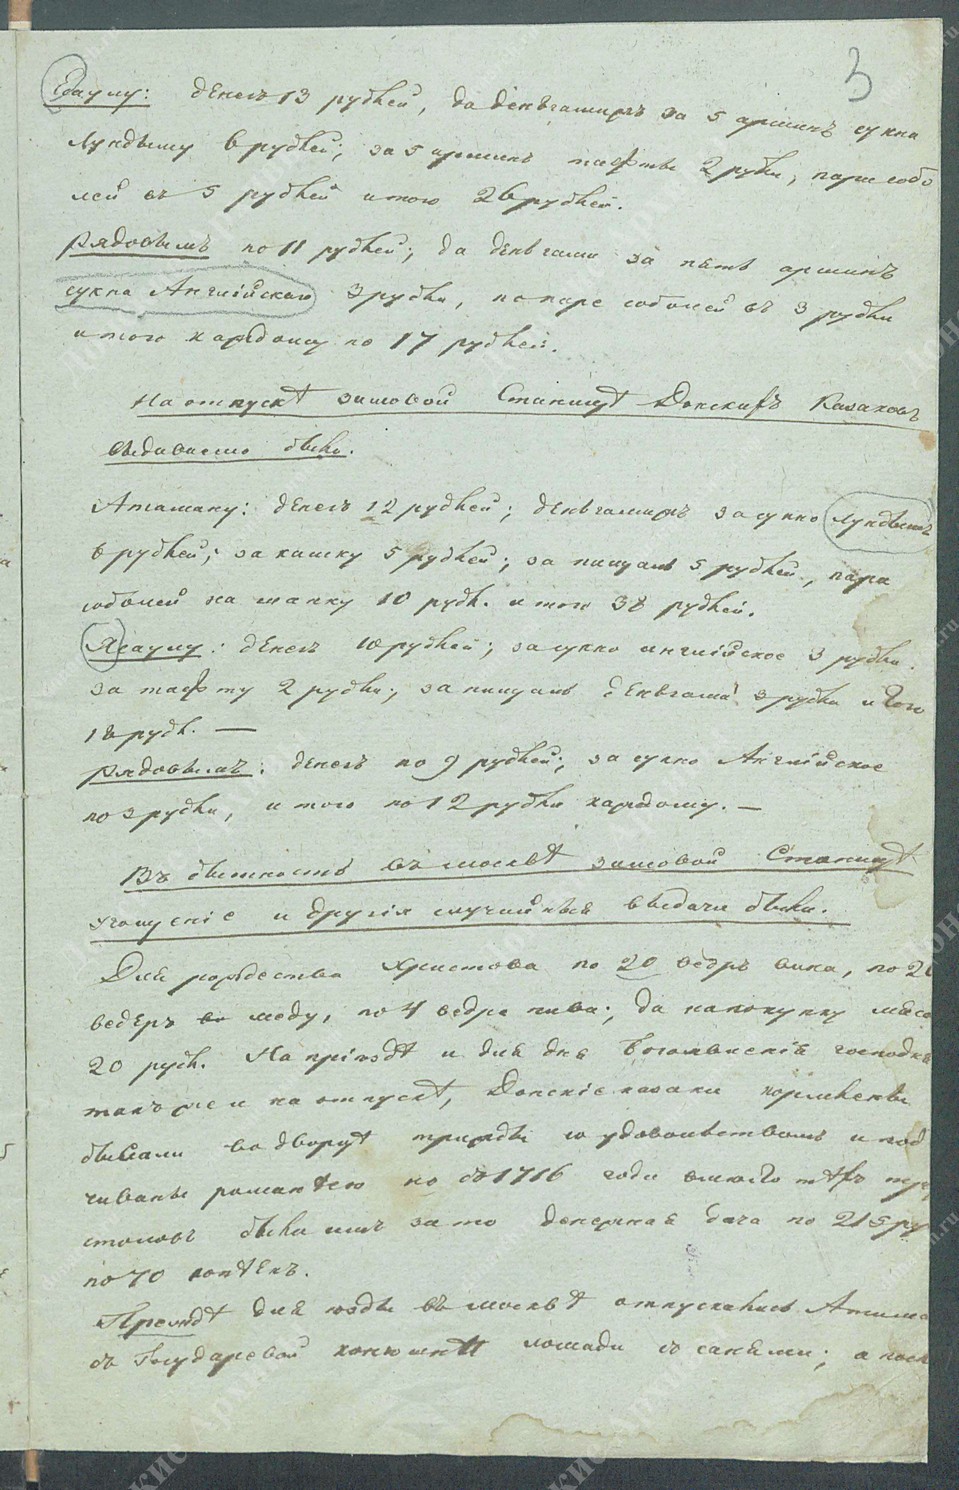 3
Есаулу: денегъ 13 рублей, да деньгамижъ за 5 аршинъ сукна
Лундышу 6 рублей; за 5 аршинъ тафты 2 рубли, пара собо
лей въ 5 рублей итого 26 рублей.
Рядовымъ по 11 рублей; да деньгами за пять аршинъ
сукна Англійскаго 3 рубли, по паре соболей въ 3 рубли
итого каждому по 17 рублей.
На отпускѣ зимовой Станицѣ Донскихъ Казаковъ
выдаваемо было.
Атаману: денегъ 12 рублей; деньгамижъ за сукно Лундышъ
6 рублей; за камку 5 рублей; за пищаль 5 рублей, пара
соболей на шапку 10 рубл. итого 38 рублей.
Ясаулу: денегъ 10 рублей; за сукно англійское 3 рубли.
за тафту 2 рубли; за пищаль деньгами 3 рубли итого
18 рубл. —
Рядовымъ: денегъ по 9 рублей; за сукно Англійское
по 3 рубли, итого по 12 рубли каждому. —
Въ бытность въ москвѣ зимовой Станицѣ
угощеніе и другія случайныя выдачи были.
Для рождества Христова по 20 ведръ вина, по 20
ведеръ меду, по 4 ведра пива; да на покупку мяса
20 рубл. На пріѣздѣ и для дня Богоявленія господня
такъ же и на отпускѣ, Донскіе казаки кормлены
бывали во дворцѣ трижды со удовольствомъ и под
чиваны романѣею но съ 1716 года вмѣсто тѣхъ трехъ
столовъ была имъ за то денежная дача по 215 ру
по 70 копѣекъ.
Прежде для ѣзды въ москвѣ отпускались Атама
съ Государевой конюшни лошади съ санями; а посл